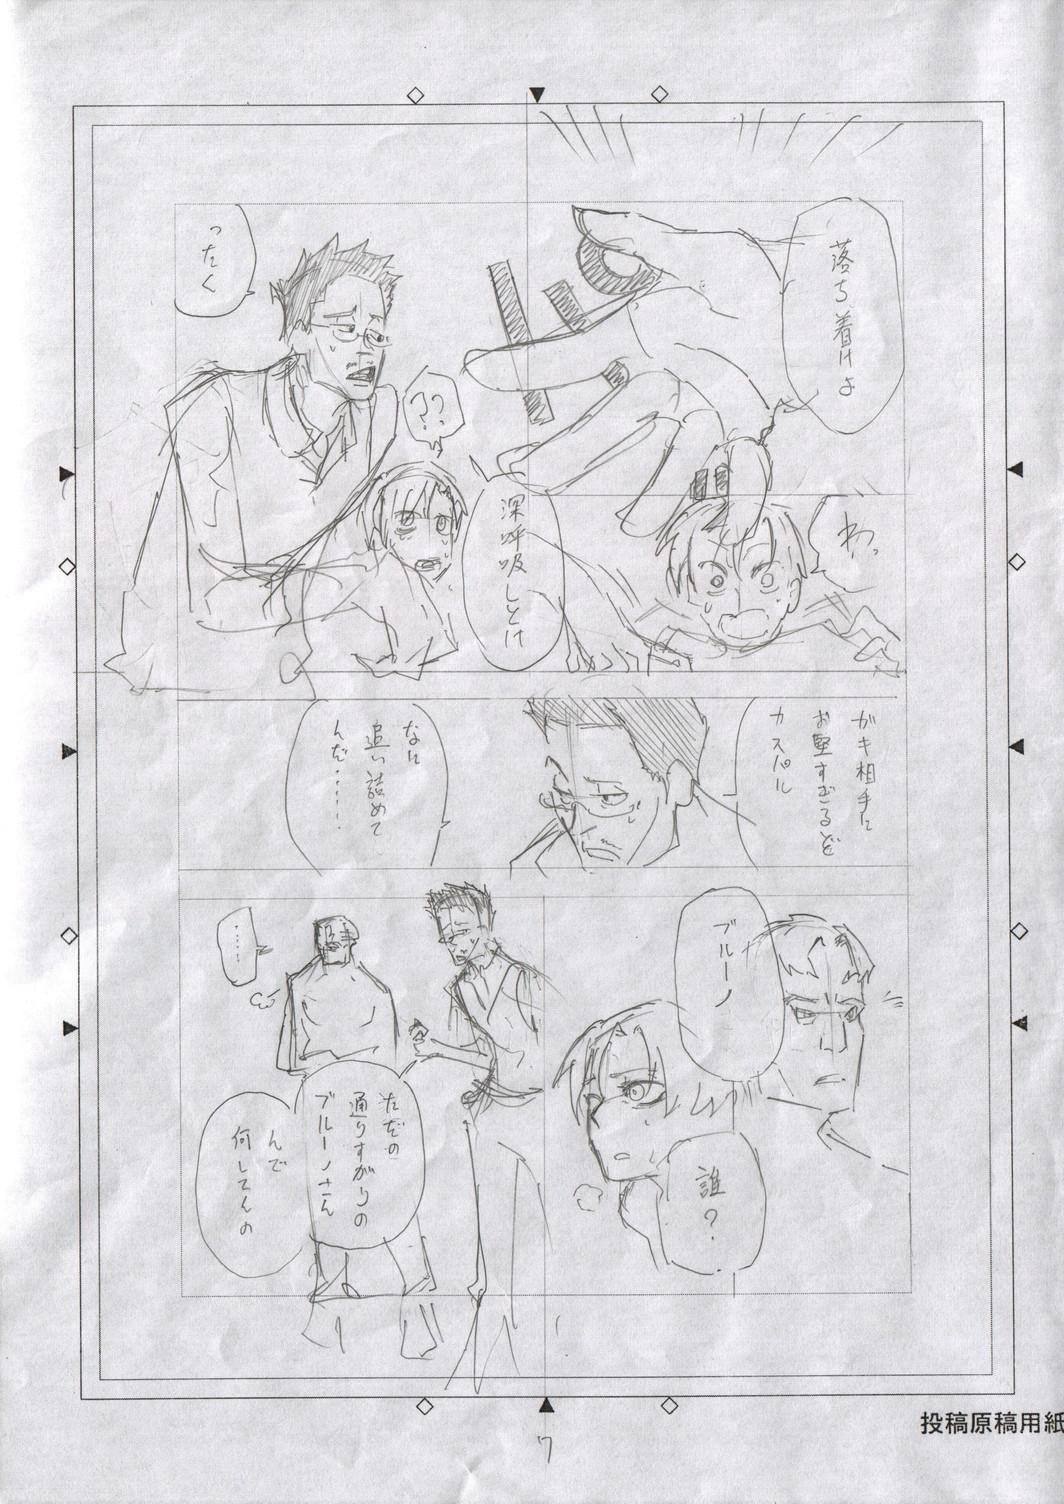 落ち着けよ
わっ
深呼吸しとけ
??
ったく
ガキ相手に
お堅すぎるぞ
カスパル
なに
追い詰めて
んだ……
ブルーノ
誰?
ただの
通りすがりの
ブルーノさん
んで
何してんの
……
投稿原稿用紙
7